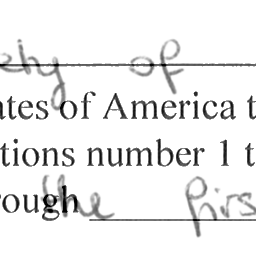 ety of
ates of America t
tions number 1 t
rough the firs